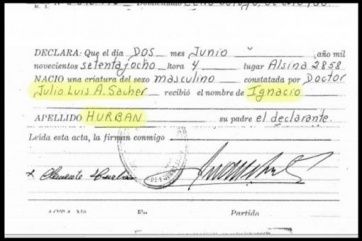 DECLARA: Que el día DOS mes Junio año mil
novecientos setenta y ocho hora 4 lugar Alsina 2858
NACIO una criatura del sexo masculino constatada por Doctor
Julio Luis A. Sacher recibió el nombre de Ignacio
APELLIDO HURBAN su padre el declarante
Leída esta acta, la firman conmigo
x Clemente Hurban
En Partido